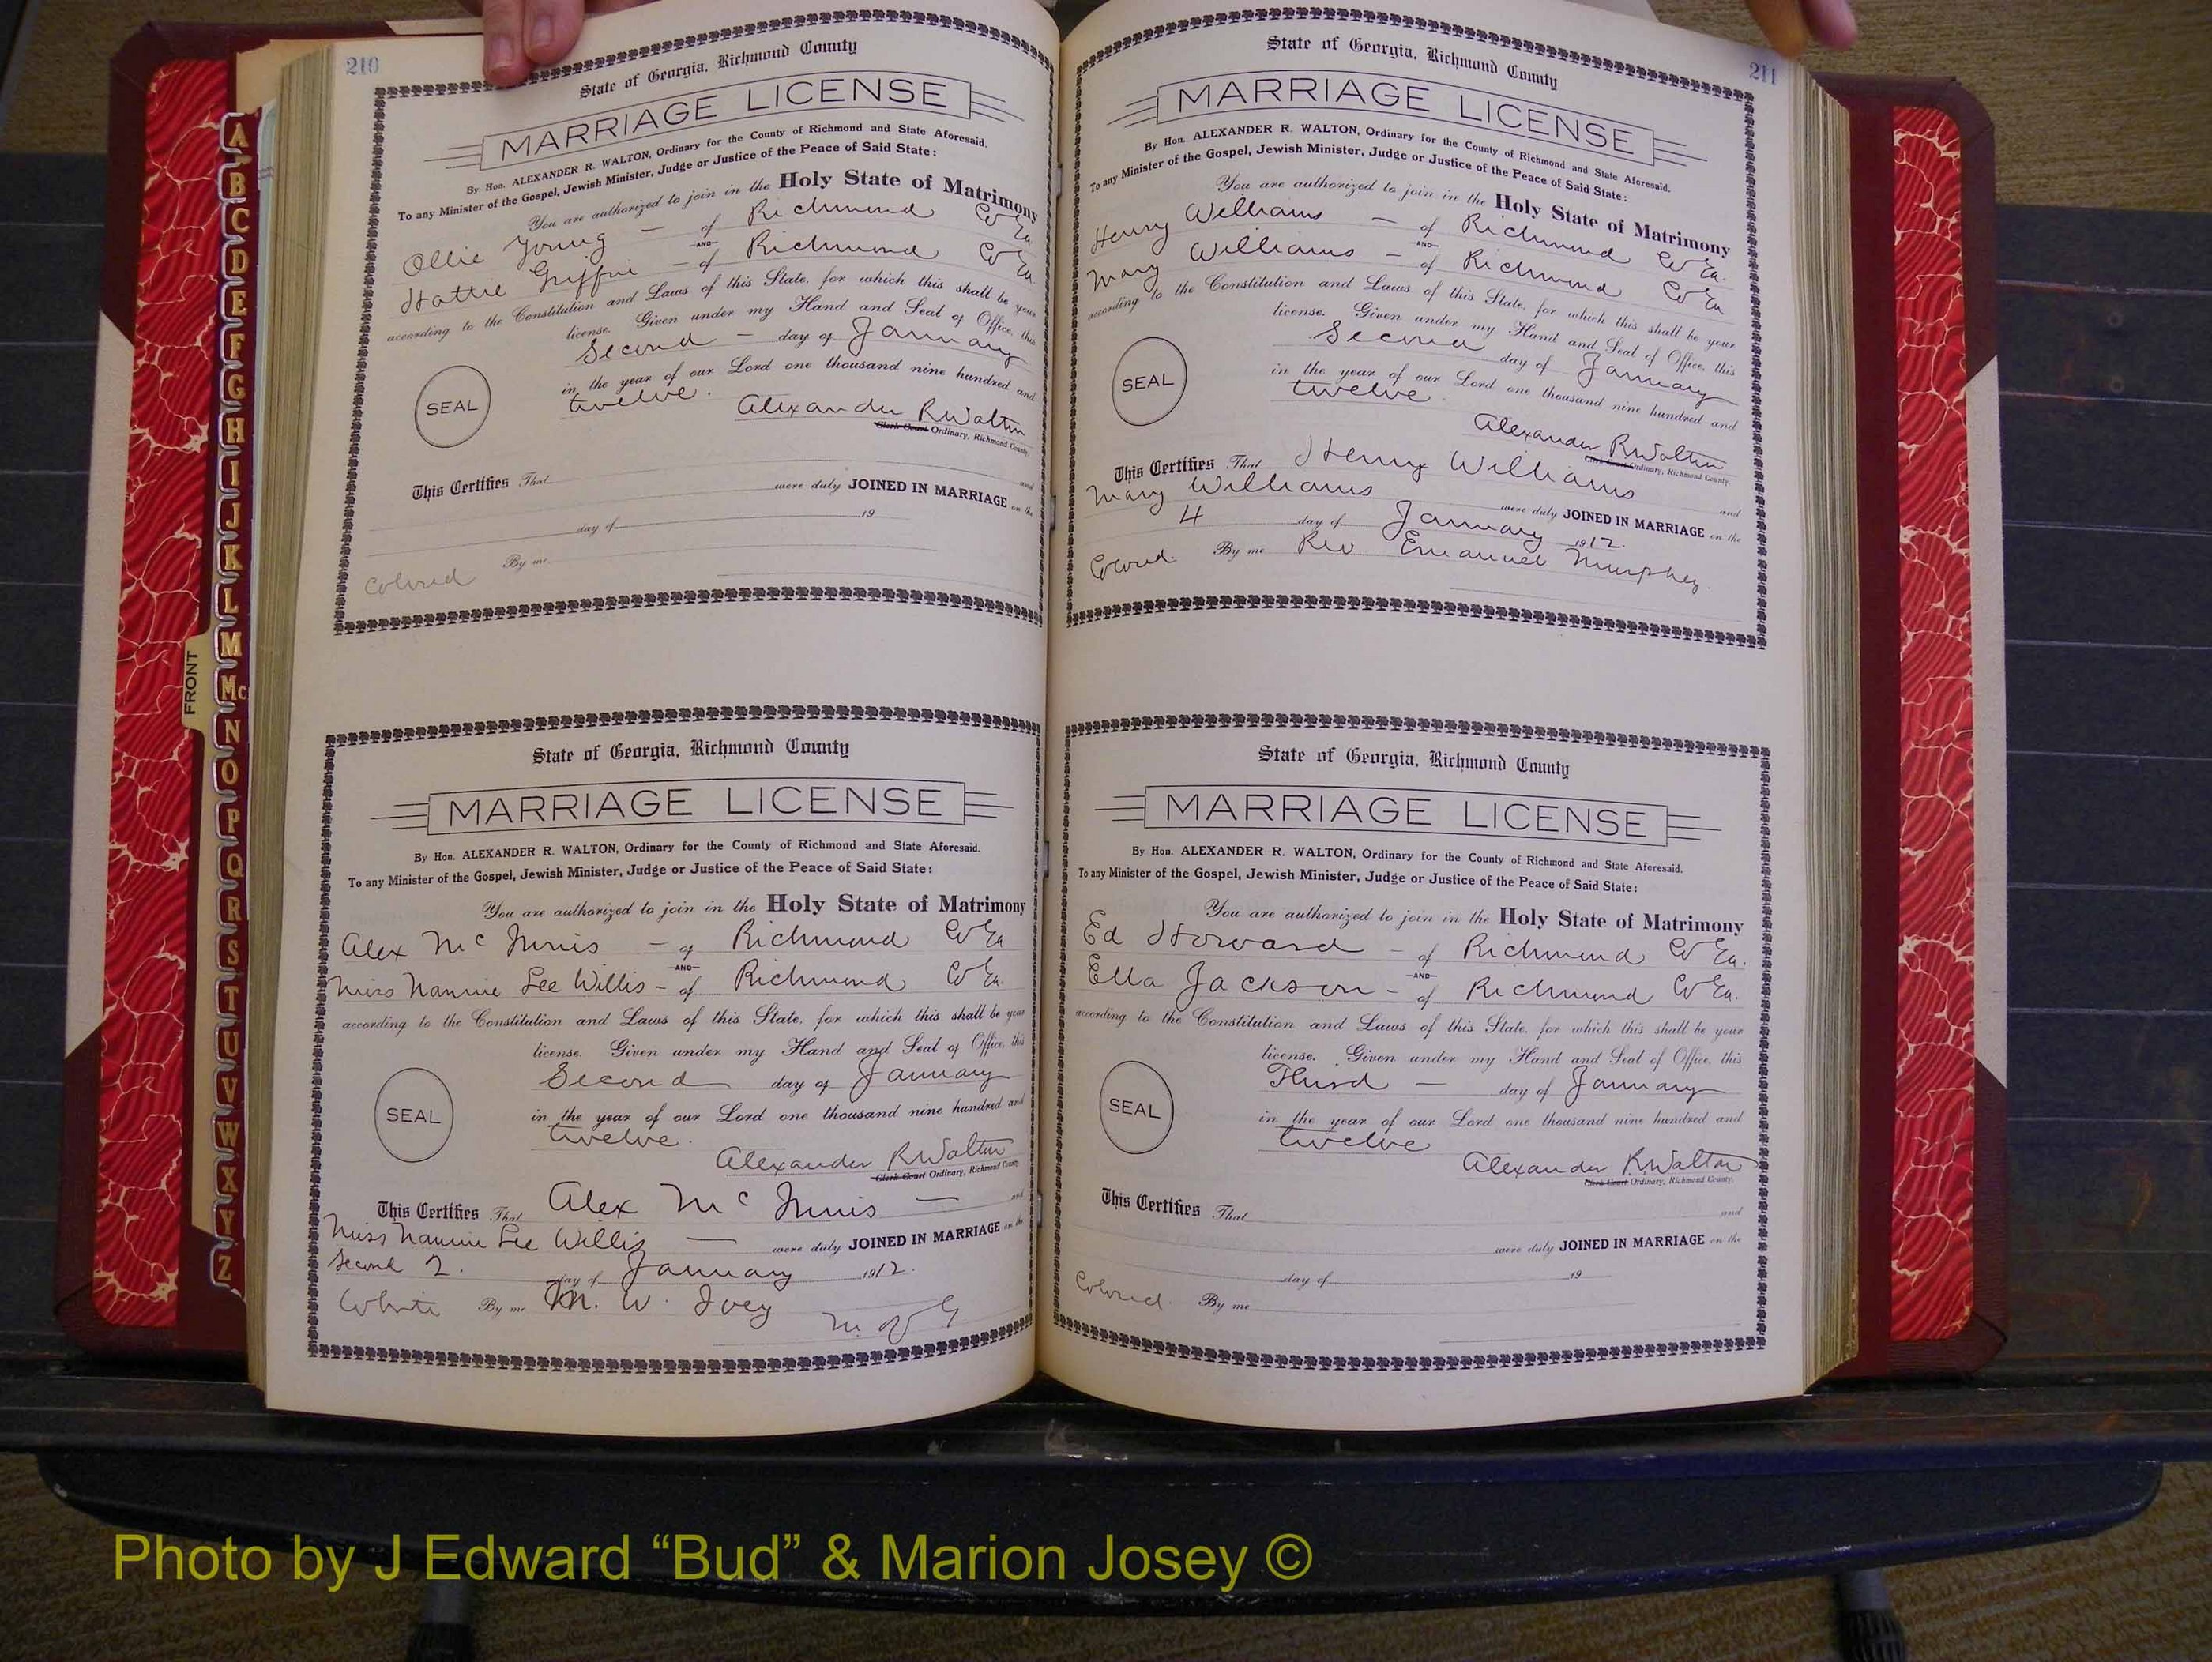 210
State of Georgia, Richmond County
MARRIAGE LICENSE
By Hon. ALEXANDER R. WALTON, Ordinary for the County of Richmond and State Aforesaid.
To any Minister of the Gospel, Jewish Minister, Judge or Justice of the Peace of Said State:
You are authorized to join in the Holy State of Matrimony
Ollie Young — of Richmond Co Ga
AND
Hattie Griffin — of Richmond Co Ga
according to the Constitution and Laws of this State, for which this shall be your
license. Given under my Hand and Seal of Office, this
Second — day of January
SEAL
in the year of our Lord one thousand nine hundred and
twelve.
Alexander R Walton
Clerk Court Ordinary, Richmond County.
This Certifies That and
were duly JOINED IN MARRIAGE on the
day of 19
By me
Colored
State of Georgia, Richmond County
MARRIAGE LICENSE
By Hon. ALEXANDER R. WALTON, Ordinary for the County of Richmond and State Aforesaid.
To any Minister of the Gospel, Jewish Minister, Judge or Justice of the Peace of Said State:
You are authorized to join in the Holy State of Matrimony
Alex McInnis — of Richmond Co Ga
AND
Miss Nannie Lee Willis — of Richmond Co Ga.
according to the Constitution and Laws of this State, for which this shall be your
license. Given under my Hand and Seal of Office, this
Second day of January
SEAL
in the year of our Lord one thousand nine hundred and
twelve.
Alexander R Walton
Clerk Court Ordinary, Richmond County
This Certifies That Alex McInnis — and
Miss Nannie Lee Willis — were duly JOINED IN MARRIAGE on the
Second 2. day of January 1912.
White By me M. W. Ivey M. of G
211
State of Georgia, Richmond County
MARRIAGE LICENSE
By Hon. ALEXANDER R. WALTON, Ordinary for the County of Richmond and State Aforesaid.
To any Minister of the Gospel, Jewish Minister, Judge or Justice of the Peace of Said State:
You are authorized to join in the Holy State of Matrimony
Henry Williams — of Richmond Co Ga.
AND
Mary Williams — of Richmond Co Ga
according to the Constitution and Laws of this State, for which this shall be your
license. Given under my Hand and Seal of Office, this
Second day of January
SEAL
in the year of our Lord one thousand nine hundred and
twelve.
Alexander R Walton
Clerk Court Ordinary, Richmond County.
This Certifies That Henry Williams and
Mary Williams were duly JOINED IN MARRIAGE on the
4 day of January 1912.
Colored. By me Rev Emanuel Murphey.
State of Georgia, Richmond County
MARRIAGE LICENSE
By Hon. ALEXANDER R. WALTON, Ordinary for the County of Richmond and State Aforesaid.
To any Minister of the Gospel, Jewish Minister, Judge or Justice of the Peace of Said State:
You are authorized to join in the Holy State of Matrimony
Ed Howard — of Richmond Co Ga.
AND
Ella Jackson — of Richmond Co Ga.
according to the Constitution and Laws of this State, for which this shall be your
license. Given under my Hand and Seal of Office, this
Third — day of January
SEAL
in the year of our Lord one thousand nine hundred and
twelve
Alexander R. Walton
Clerk Court Ordinary, Richmond County.
This Certifies That and
were duly JOINED IN MARRIAGE on the
day of 19
Colored. By me
FRONT
A
B
C
D
E
F
G
H
I
J
K
L
M
Mc
N
O
P
Q
R
S
T
U
V
W
X
Y
Z
Photo by J Edward “Bud” & Marion Josey ©